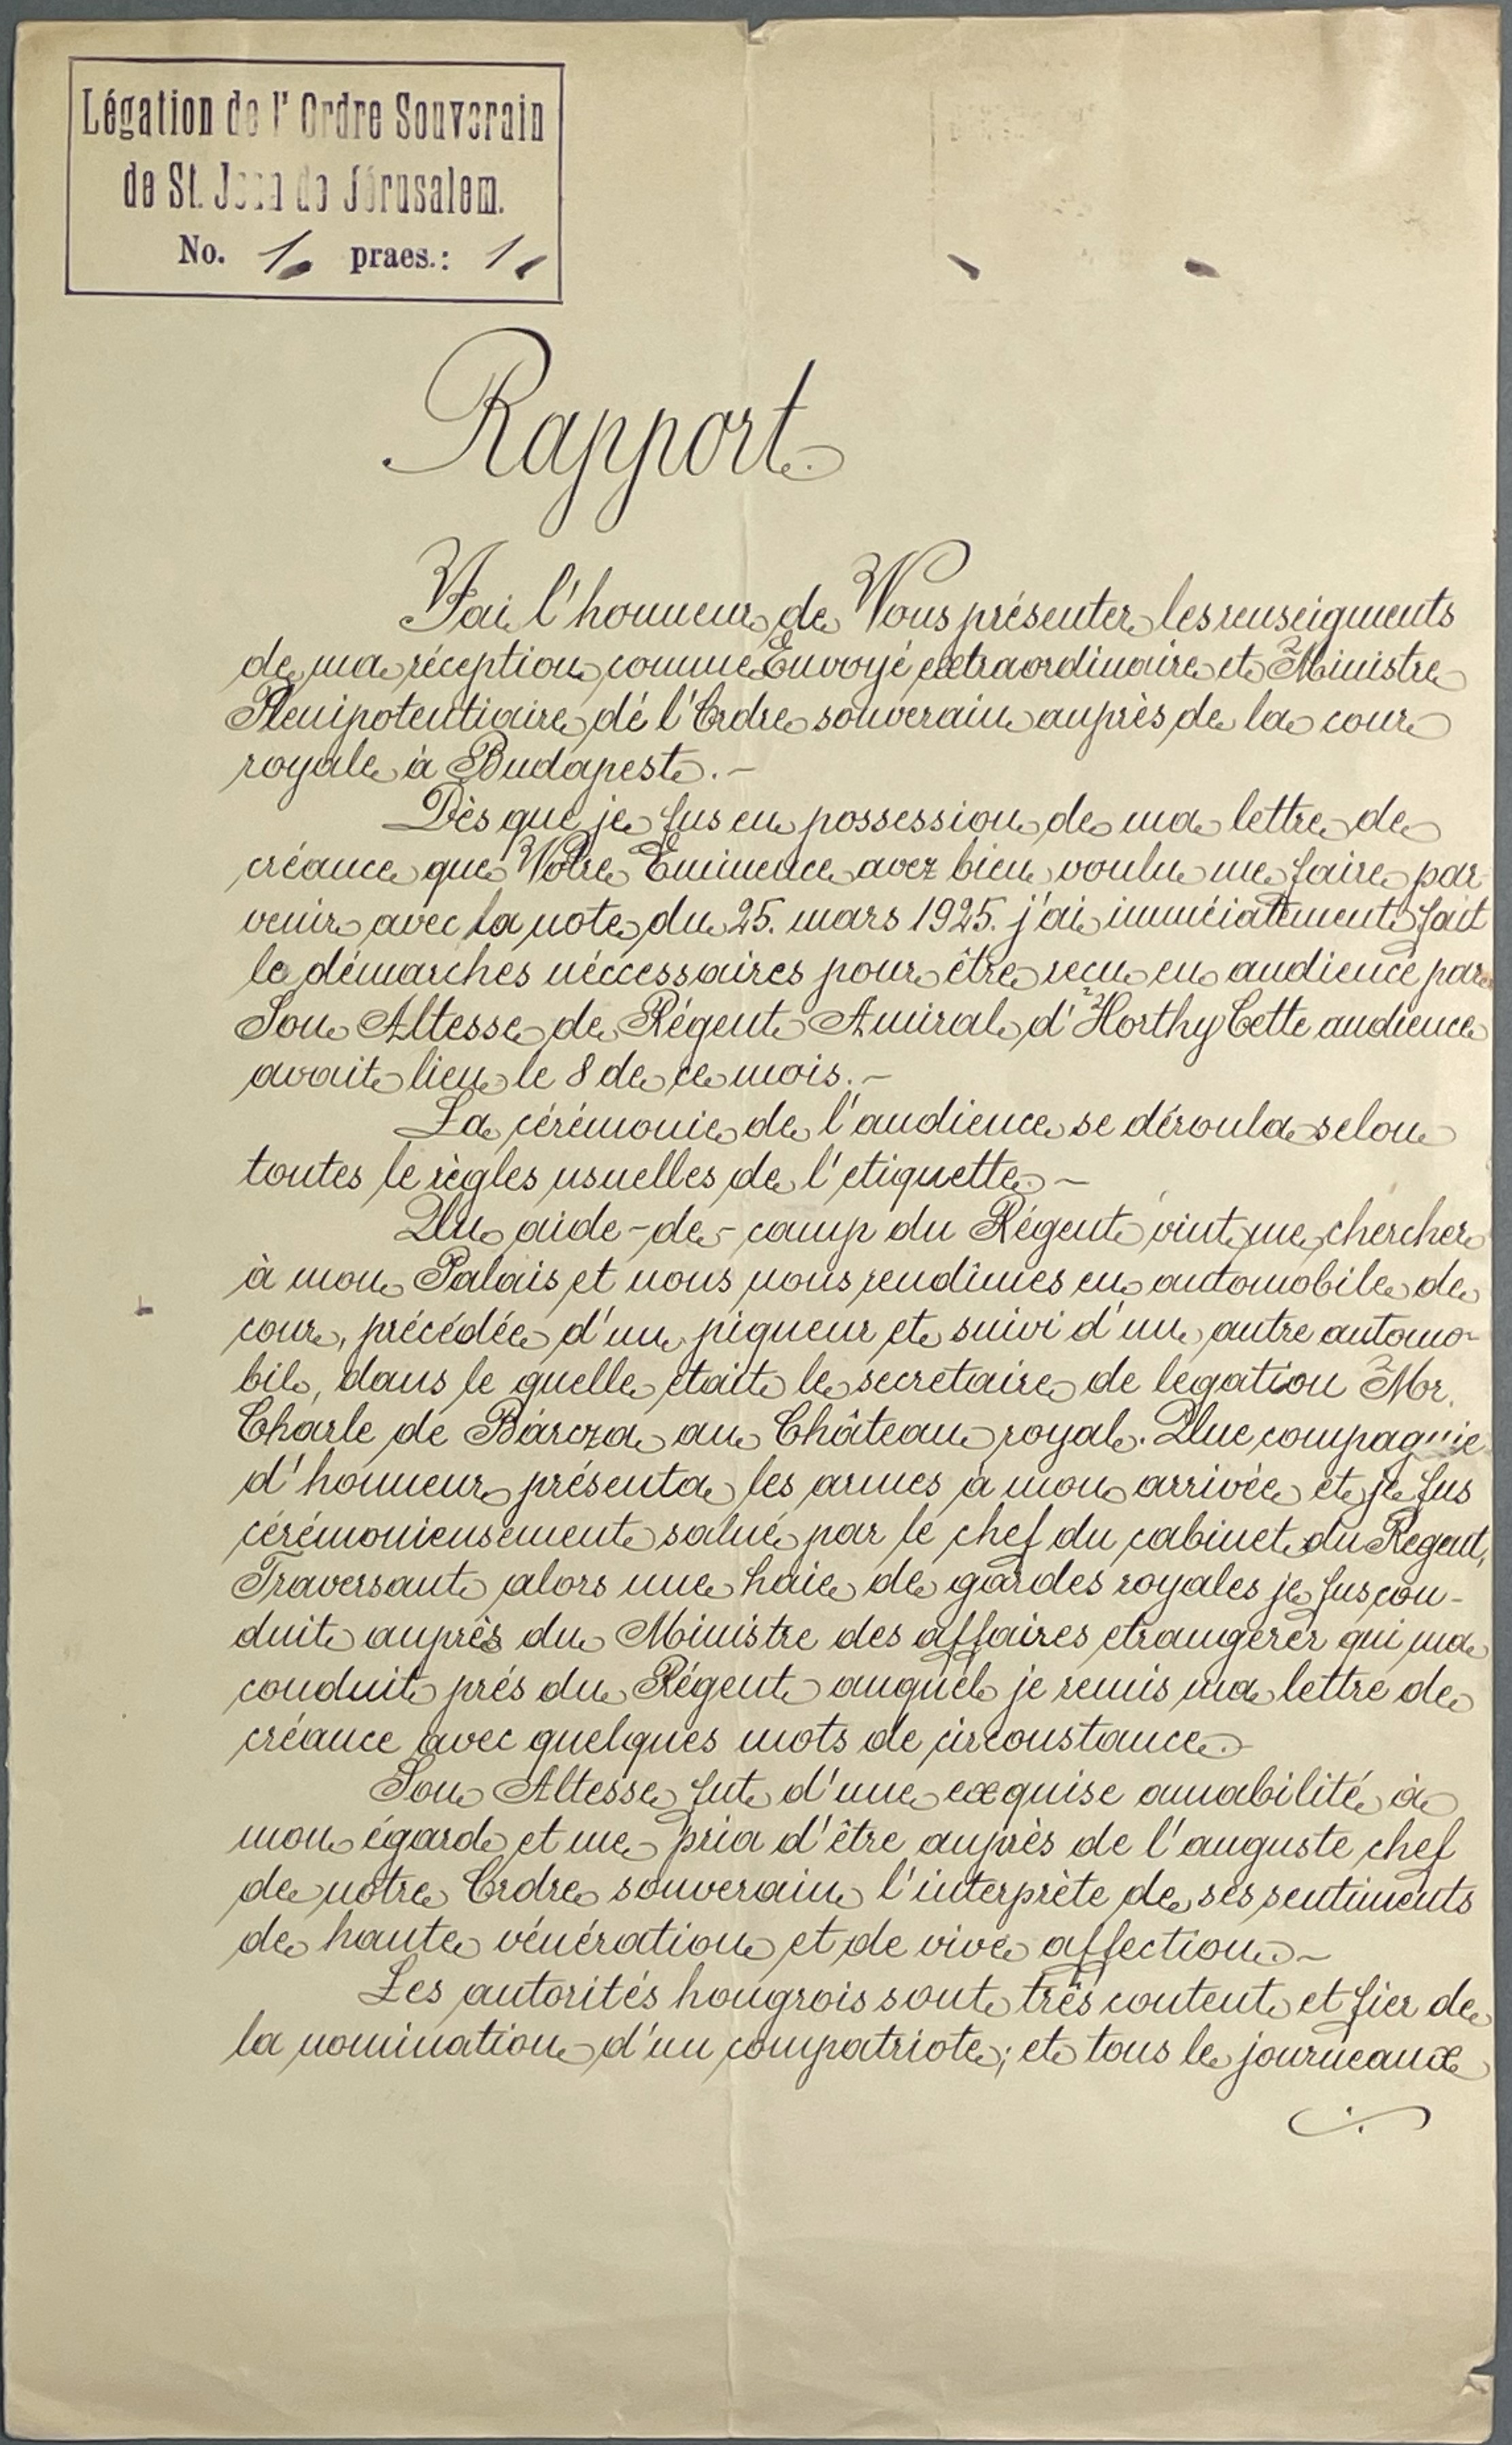 Légation de l'Ordre Souverain
de St. Jean de Jérusalem.
No. 1. praes.: 1.
Rapport.
J'ai l'honneur de Vous présenter les renseigments
de ma réception comme Envoyé extraordinaire et Ministre
Plenipotentiaire dé l'Ordre souverain auprès de la cour
royale à Budapest. —
Dès que je fus en possession de ma lettre de
créance que Votre Eminence avez bien voulu me faire par-
venir avec la note du 25. mars 1925. j'ai imméiattement fait
le démarches néccessaires pour être recu en audience par
Son Altesse de Régent Amiral d'Horthy Cette audience
avait lieu le 8 de ce mois. —
La cérémonie de l'audience se déroula selon
toutes le règles usuelles de l'etiquette. —
Un aide-de-camp du Régent vint me chercher
à mon Palais et nous nous rendîmes en automobile de
cour, précédée d'un piqueur et suivi d'un autre automo-
bil, dans le quelle etait le secretaire de legation Mr.
Chárle de Bárcza au Château royal. Une compagnie
d'honneur présenta les armes à mon arrivée et je fus
cérémonieusement salué par le chef du cabinet du Regent,
Traversant alors une haie de gardes royales je fus con-
duit auprès du Ministre des affaires etrangérér qui ma
conduit prés du Régent auquél je remis ma lettre de
créance avec quelques mots de circonstance.
Son Altesse fut d'une exquise amabilité à
mon égard et me pria d'être auprès de l'auguste chef
de notre Ordre souverain l'interprète de ses sentiments
de haute vénération et de vive affection. —
Les autorités hougrois sont très content et fier de
la nomination d'un compatriote; et tous le journeaux
./.